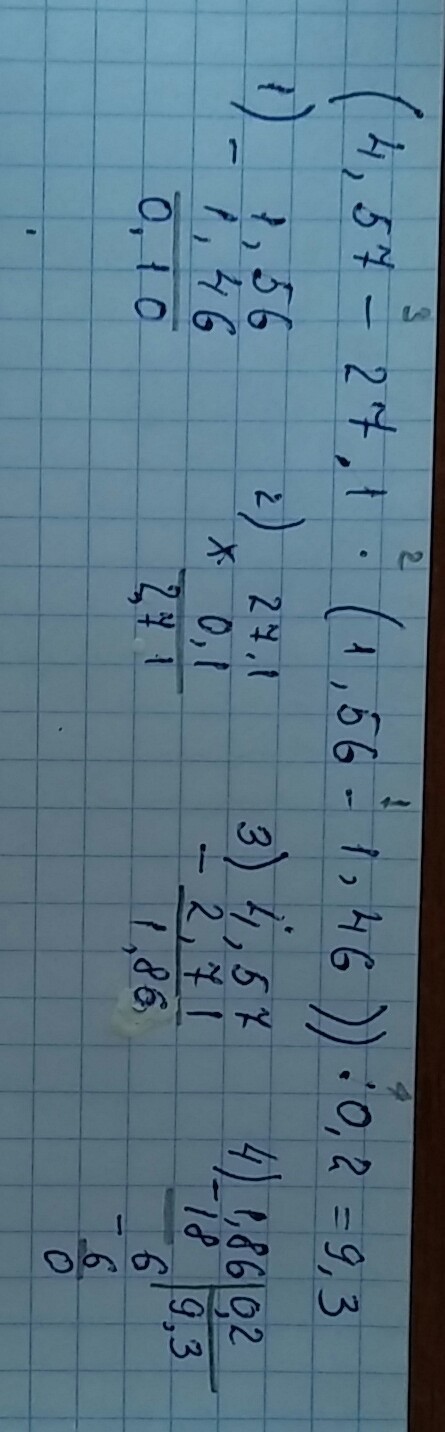 3 2 1 4
(4,57 - 27,1 · (1,56 - 1,46)) : 0,2 = 9,3
1) 1,56
- 1,46
0,10
2) 27,1
× 0,1
2,71
3) 4,57
- 2,71
1,86
4) 1,86 0,2
- 18 9,3
6
- 6
0